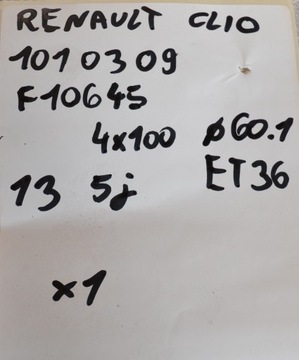 RENAULT CLIO
1010309
F10645
4x100 ø60.1
13 5j ET36
x1